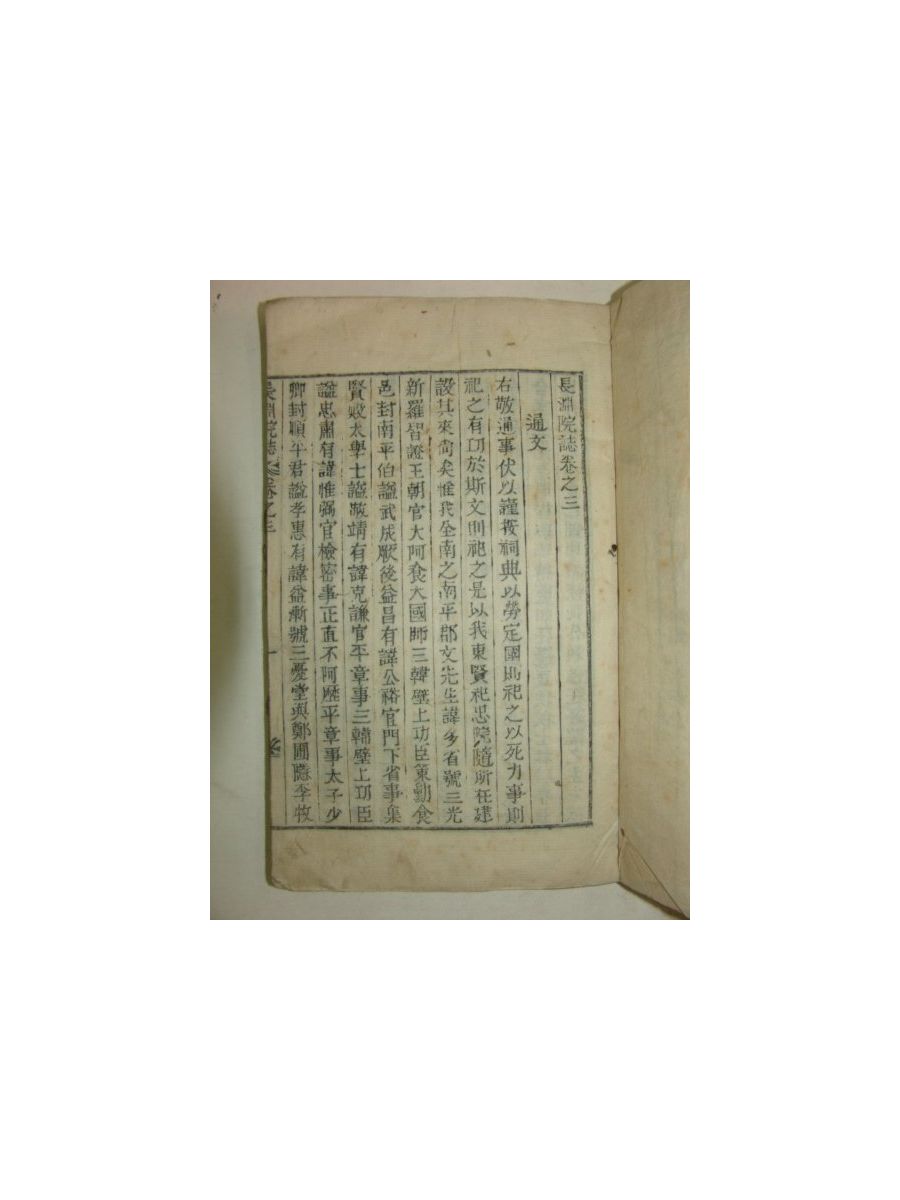 長淵院誌卷之三
通文
右敬通事伏以謹按祠典以勞定國則祀之以死力事則
祀之有功於斯文則祀之是以我東賢祀忠院隨所在建
設其來尙矣惟我全南之南平郡文先生諱多省號三光
新羅智證王朝官大阿飡大國師三韓壁上功臣策勳食
邑封南平伯謚武成厥後益昌有諱公裕官門下省事集
賢殿太學士謚敬靖有諱克謙官平章事三韓壁上功臣
謚忠肅有諱惟弼官檢密事正直不阿歷平章事太子少
卿封順平君謚孝惠有諱益漸號三憂堂與鄭圃隱李牧
長淵院誌 卷之三 一